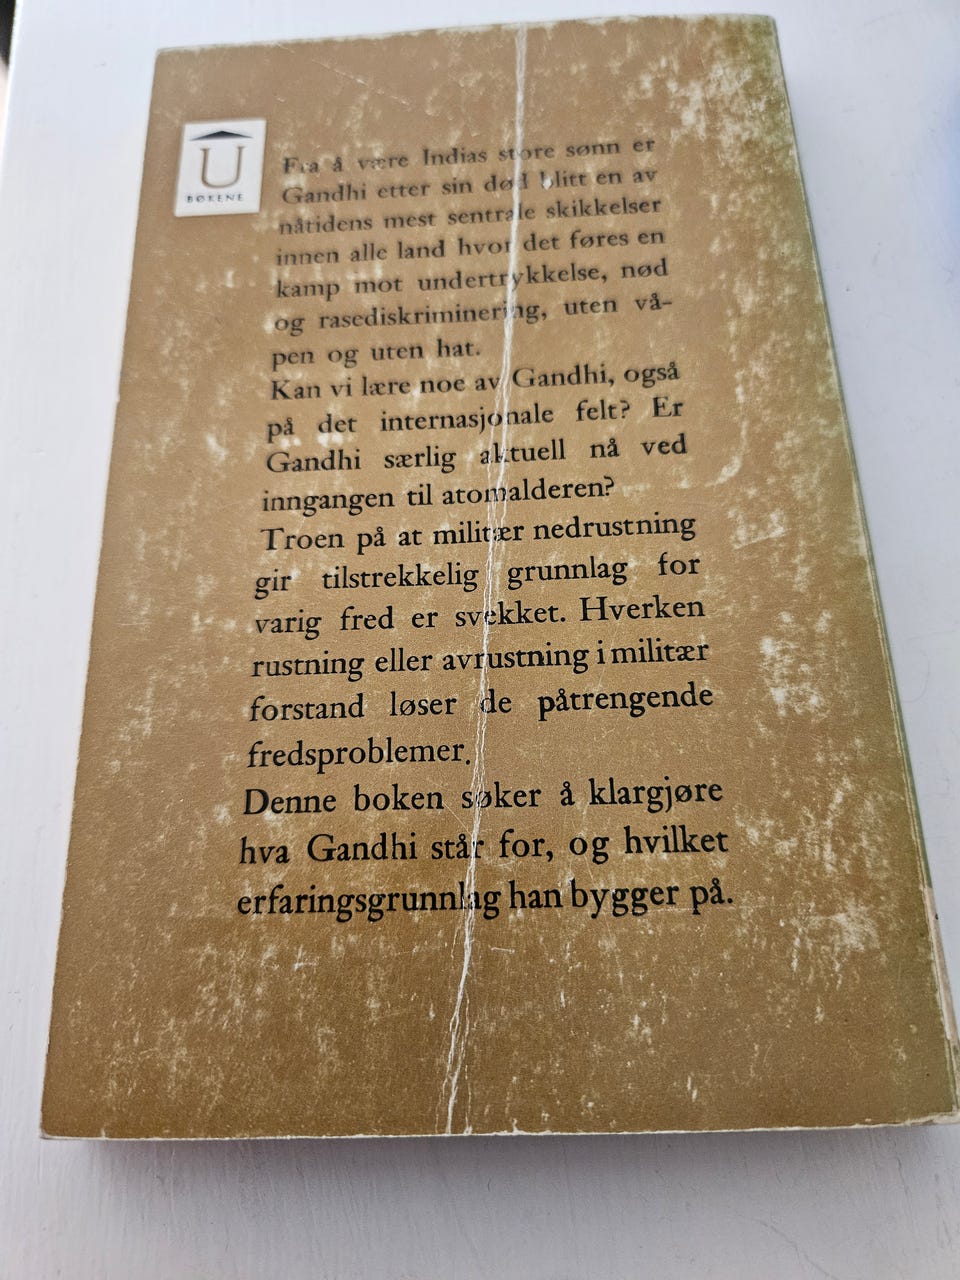 U
BØKENE
Fra å være Indias store sønn er
Gandhi etter sin død blitt en av
nåtidens mest sentrale skikkelser
innen alle land hvor det føres en
kamp mot undertrykkelse, nød
og rasediskriminering, uten vå-
pen og uten hat.
Kan vi lære noe av Gandhi, også
på det internasjonale felt? Er
Gandhi særlig aktuell nå ved
inngangen til atomalderen?
Troen på at militær nedrustning
gir tilstrekkelig grunnlag for
varig fred er svekket. Hverken
rustning eller avrustning i militær
forstand løser de påtrengende
fredsproblemer.
Denne boken søker å klargjøre
hva Gandhi står for, og hvilket
erfaringsgrunnlag han bygger på.